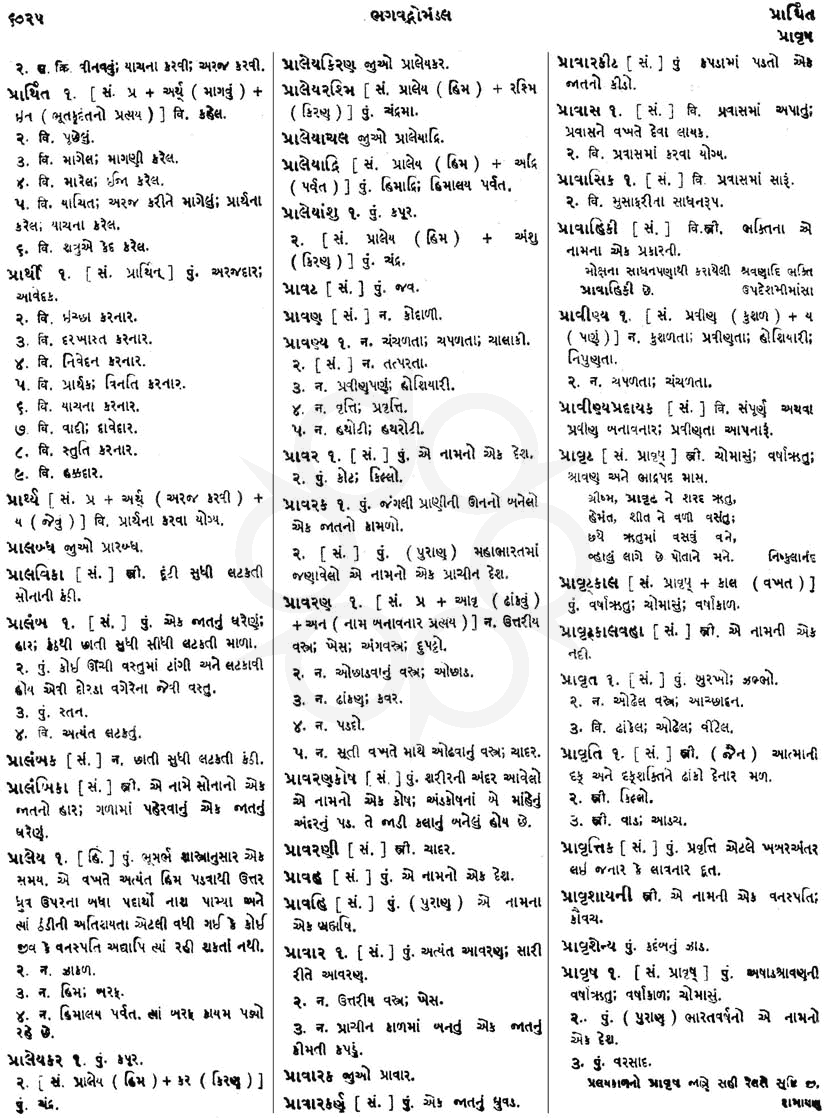 ૬૦૨૫
ભગવદ્ગોમંડલ
પ્રાર્થિત
પ્રાવૃષ
૨. સ. ક્રિ. વીનવવું; યાચના કરવી; અરજ કરવી.
પ્રાર્થિત ૧. [ સં. પ્ર + અર્થ્ ( માગવું ) +
ઇત ( ભૂતકૃદંતનો પ્રત્યય ) ] વિ. કહેલ.
૨. વિ. પૂછેલું.
૩. વિ. માગેલ; માગણી કરેલ.
૪. વિ. મારેલ; ઈજા કરેલ.
૫. વિ. યાચિત; અરજ કરીને માગેલું; પ્રાર્થના
કરેલ; યાચના કરેલ.
૬. વિ. શત્રુએ કેદ કરેલ.
પ્રાર્થી ૧. [ સં. પ્રાર્થિન્ ] પું. અરજદાર;
આવેદક.
૨. વિ. ઇચ્છા કરનાર.
૩. વિ. દરખાસ્ત કરનાર.
૪. વિ. નિવેદન કરનાર.
૫. વિ. પ્રાર્થક; વિનતિ કરનાર.
૬. વિ. યાચના કરનાર.
૭. વિ. વાદી; દાવેદાર.
૮. વિ. સ્તુતિ કરનાર.
૯. વિ. હક્કદાર.
પ્રાર્થ્ય [ સં. પ્ર + અર્થ્ ( અરજ કરવી ) +
ય ( જેવું ) ] વિ. પ્રાર્થના કરવા યોગ્ય.
પ્રાલબ્ધ જુઓ પ્રારબ્ધ.
પ્રાલવિકા [ સં. ] સ્ત્રી. દૂંટી સુધી લટકતી
સોનાની કંઠી.
પ્રાલંબ ૧. [ સં. ] પું. એક જાતનું ઘરેણું;
હાર; કંઠથી છાતી સુધી સીધી લટકતી માળા.
૨. પું. કોઈ ઊંચી વસ્તુમાં ટાંગી અને લટકાવી
હોય એવી દોરડા વગેરેના જેવી વસ્તુ.
૩. પું. સ્તન.
૪. વિ. અત્યંત લટકતું.
પ્રાલંબક [ સં. ] ન. છાતી સુધી લટકતી કંઠી.
પ્રાલંબિકા [ સં. ] સ્ત્રી. એ નામે સોનાનો એક
જાતનો હાર; ગળામાં પહેરવાનું એક જાતનું
ઘરેણું.
પ્રાલેય ૧. [ હિં. ] પું. ભૂગર્ભ શાસ્ત્રાનુસાર એક
સમય. એ વખતે અત્યંત હિમ પડવાથી ઉત્તર
ધ્રુવ ઉપરના બધા પદાર્થો નાશ પામ્યા અને
ત્યાં ઠંડીની અતિશયતા એટલી વધી ગઈ કે કોઈ
જીવ કે વનસ્પતિ અદ્યાપિ ત્યાં રહી શકતાં નથી.
૨. ન. ઝાકળ.
૩. ન. હિમ; બરફ.
૪. ન. હિમાલય પર્વત. ત્યાં બરફ કાયમ પડ્યો
રહે છે.
પ્રાલેયકર ૧. પું. કપૂર.
૨. [ સં. પ્રાલેય ( હિમ ) + કર ( કિરણ ) ]
પું. ચંદ્ર.
પ્રાલેયકિરણ જુઓ પ્રાલેયકર.
પ્રાલેયરશ્મિ [ સં. પ્રાલેય ( હિમ ) + રશ્મિ
( કિરણ ) ] પું. ચંદ્રમા.
પ્રાલેયાચલ જુઓ પ્રાલેયાદ્રિ.
પ્રાલેયાદ્રિ [ સં. પ્રાલેય ( હિમ ) + અદ્રિ
( પર્વત ) ] પું. હિમાદ્રિ; હિમાલય પર્વત.
પ્રાલેયાંશુ ૧. પું. કપૂર.
૨. [ સં. પ્રાલેય ( હિમ ) + અંશુ
( કિરણ ) ] પું. ચંદ્ર.
પ્રાવટ [ સં. ] પું. જવ.
પ્રાવણ [ સં. ] ન. કોદાળી.
પ્રાવણ્ય ૧. ન. ચંચળતા; ચપળતા; ચાલાકી.
૨. [ સં. ] ન. તત્પરતા.
૩. ન. પ્રવીણપણું; હોશિયારી.
૪. ન. વૃત્તિ; પ્રવૃત્તિ.
૫. ન. હથોટી; હથરોટી.
પ્રાવર ૧. [ સં. ] પું. એ નામનો એક દેશ.
૨. પું. કોટ; કિલ્લો.
પ્રાવરક ૧. પું. જંગલી પ્રાણીની ઊનનો બનેલો
એક જાતનો કામળો.
૨. [ સં. ] પું. ( પુરાણ ) મહાભારતમાં
જણાવેલો એ નામનો એક પ્રાચીન દેશ.
પ્રાવરણ ૧. [ સં. પ્ર + આવૃ ( ઢાંકવું )
+ અન ( નામ બનાવનાર પ્રત્યય ) ] ન. ઉત્તરીય
વસ્ત્ર; ખેસ; અંગવસ્ત્ર; દુપટ્ટો.
૨. ન. ઓછાડવાનું વસ્ત્ર; ઓછાડ.
૩. ન. ઢાંકણ; કવર.
૪. ન. પડદો.
૫. ન. સૂતી વખતે માથે ઓઢવાનું વસ્ત્ર; ચાદર.
પ્રાવરણકોષ [ સં. ] પું. શરીરની અંદર આવેલો
એ નામનો એક કોષ; અંડકોષનાં બે માંહેનું
અંદરનું પડ. તે જાડી કલાનું બનેલું હોય છે.
પ્રાવરણી [ સં. ] સ્ત્રી. ચાદર.
પ્રાવહ [ સં. ] પું. એ નામનો એક દેશ.
પ્રાવહિ [ સં. ] પું. ( પુરાણ ) એ નામના
એક બ્રહ્મર્ષિ.
પ્રાવાર ૧. [ સં. ] પું. અત્યંત આવરણ; સારી
રીતે આવરણ.
૨. ન. ઉત્તરીય વસ્ત્ર; ખેસ.
૩. ન. પ્રાચીન કાળમાં બનતું એક જાતનું
કીમતી કપડું.
પ્રાવારક જુઓ પ્રાવાર.
પ્રાવારકર્ણ [ સં. ] પું. એક જાતનું ઘુવડ.
પ્રાવારકીટ [ સં. ] પું કપડામાં પડતો એક
જાતનો કીડો.
પ્રાવાસ ૧. [ સં. ] વિ. પ્રવાસમાં અપાતું;
પ્રવાસને વખતે દેવા લાયક.
૨. વિ. પ્રવાસમાં કરવા યોગ્ય.
પ્રાવાસિક ૧. [ સં. ] વિ. પ્રવાસમાં સારૂં.
૨. વિ. મુસાફરીના સાધનરૂપ.
પ્રાવાહિકી [ સં. ] વિ.સ્ત્રી. ભક્તિના એ
નામના એક પ્રકારની.
મોક્ષના સાધનપણાથી કરાયેલી શ્રવણાદિ ભક્તિ
પ્રાવાહિકી છે. ઉપદેશમીમાંસા
પ્રાવીણ્ય ૧. [ સં. પ્રવીણ ( કુશળ ) + ય
( પણું ) ] ન. કુશળતા; પ્રવીણતા; હોશિયારી;
નિપુણતા.
૨. ન. ચપળતા; ચંચળતા.
પ્રાવીણ્યપ્રદાયક [ સં. ] વિ. સંપૂર્ણ અથવા
પ્રવીણ બનાવનાર; પ્રવીણતા આપનારૂં.
પ્રાવૃટ [ સં. પ્રાવૃષ્ ] સ્ત્રી. ચોમાસું; વર્ષાઋતુ;
શ્રાવણ અને ભાદ્રપદ માસ.
ગ્રીષ્મ, પ્રાવૃટ ને શરદ ઋતુ,
હેમંત, શીત ને વળી વસંતુ;
છયે ઋતુમાં વસવું વને,
વ્હાલું લાગે છે પોતાને મને. નિષ્કુલાનંદ
પ્રાવૃટ્કાલ [ સં. પ્રાવૃષ્ + કાલ ( વખત ) ]
પું. વર્ષાઋતુ; ચોમાસું; વર્ષાકાળ.
પ્રાવૃટ્કાલવહા [ સં. ] સ્ત્રી. એ નામની એક
નદી.
પ્રાવૃત ૧. [ સં. ] પું. બુરખો; ઝબ્ભો.
૨. ન. ઓઢેલ વસ્ત્ર; આચ્છાદન.
૩. વિ. ઢાંકેલ; ઓઢેલ; વીંટેલ.
પ્રાવૃતિ ૧. [ સં. ] સ્ત્રી. ( જૈન ) આત્માની
દૃક્ અને દૃક્શક્તિને ઢાંકી દેનાર મળ.
૨. સ્ત્રી. કિલ્લો.
૩. સ્ત્રી. વાડ; આડચ.
પ્રાવૃત્તિક [ સં. ] પું. પ્રવૃત્તિ એટલે ખબરઅંતર
લઈ જનાર કે લાવનાર દૂત.
પ્રાવૃશાયની સ્ત્રી. એ નામની એક વનસ્પતિ;
કૌવચ.
પ્રાવૃશેન્ય પું. કદંબનું ઝાડ.
પ્રાવૃષ ૧. [ સં. પ્રાવૃષ્ ] પું. અષાડશ્રાવણની
વર્ષાઋતુ; વર્ષાકાળ; ચોમાસું.
૨. પું. ( પુરાણ ) ભારતવર્ષનો એ નામનો
એક દેશ.
૩. પું. વરસાદ.
પ્રલયકાળનો પ્રાવૃષ જાણે સહી રેલશે સૃષ્ટિ છ.
રામાયણ